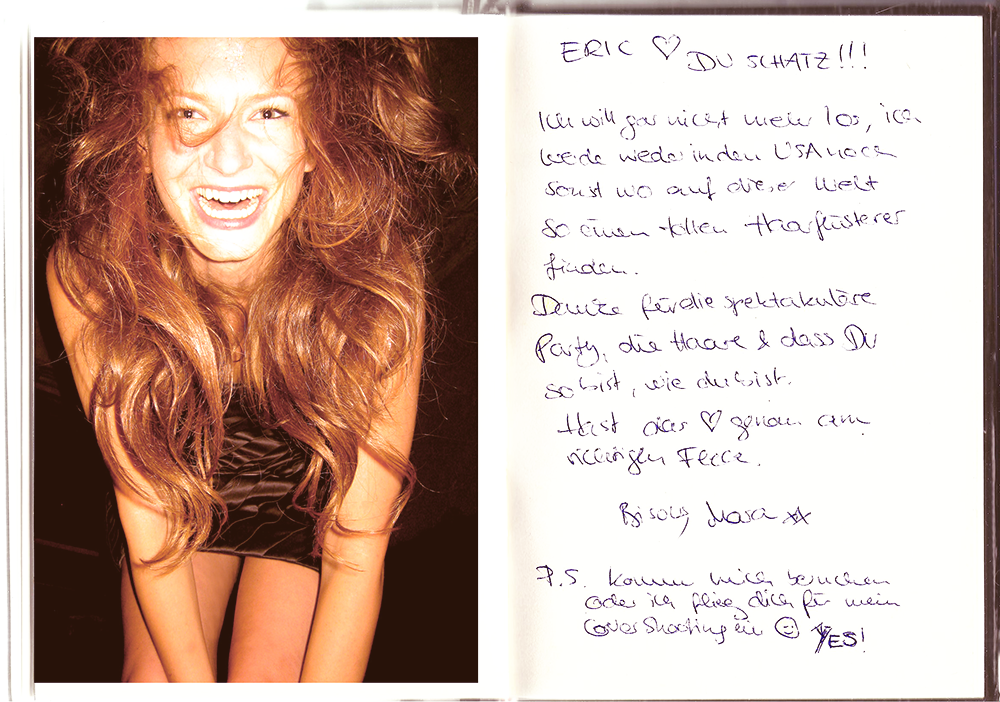 ERIC ♡ DU SCHATZ!!!
Ich will gar nicht mehr los, ich
werde weder in den USA noch
sonst wo auf dieser Welt
so einen tollen Haarflüsterer
finden.
Danke für die spektakuläre
Party, die Haare & dass Du
so bist, wie du bist.
Hast das ♡ genau am
richtigen Fleck.
Bisous, Mara ☆☆
P.S. komm mich besuchen
oder ich flieg dich für mein
Covershooting ein ☺ YES!